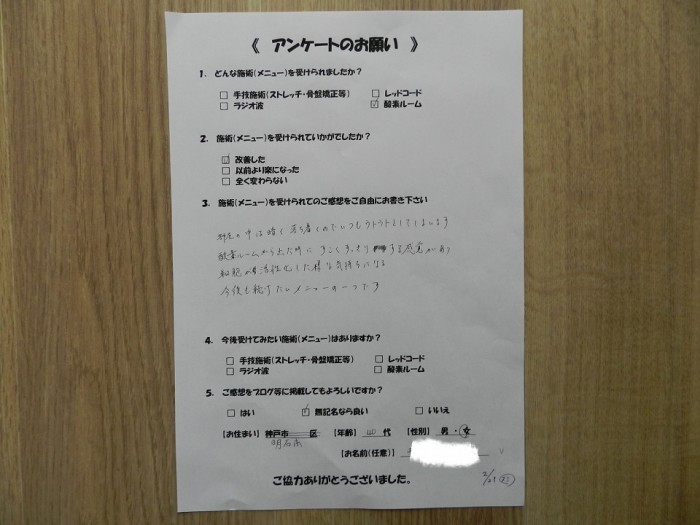 《 アンケートのお願い 》
1. どんな施術(メニュー)を受けられましたか?
□ 手技施術(ストレッチ・骨盤矯正等) □ レッドコード
□ ラジオ波 ☑ 酸素ルーム
2. 施術(メニュー)を受けられていかがでしたか?
☑ 改善した
□ 以前より楽になった
□ 全く変わらない
3. 施術(メニュー)を受けられてのご感想をご自由にお書き下さい
中は暗く落ち着くのでいつもウトウトしてしまいます
酸素ルームから出た時に すっきり する感覚があり
細胞が活性化した様な気持ちになる
今後も続けたいメニューの一つです
4. 今後受けてみたい施術(メニュー)はありますか?
□ 手技施術(ストレッチ・骨盤矯正等) □ レッドコード
□ ラジオ波 □ 酸素ルーム
5. ご感想をブログ等に掲載してもよろしいですか?
□ はい ☑ 無記名なら良い □ いいえ
【お住まい】 神戸市 区 【年齢】 40 代 【性別】 男 ・ 女
明石市
【お名前(任意)】
ご協力ありがとうございました。